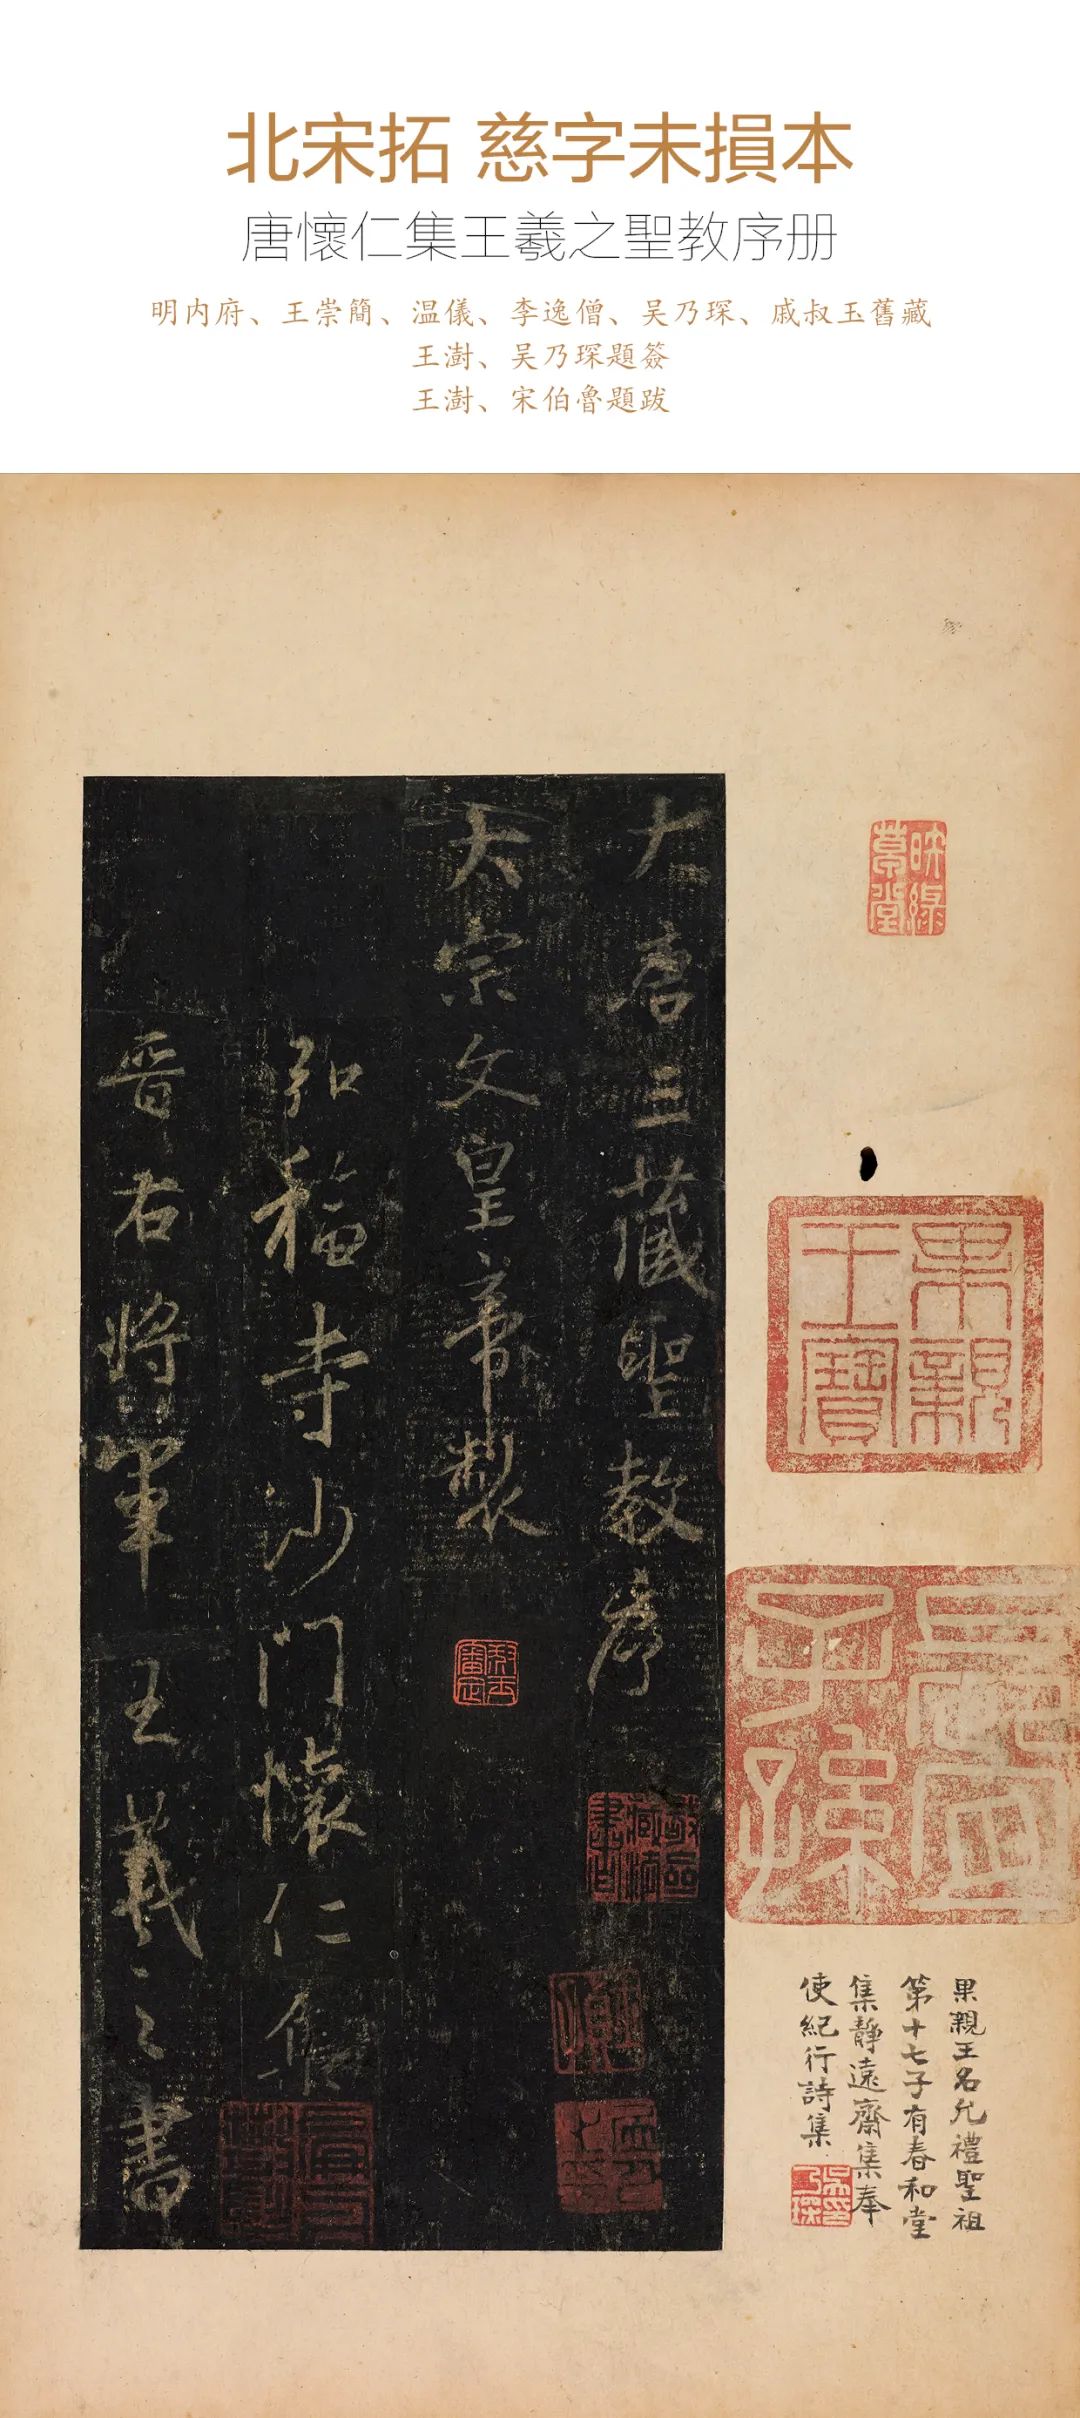 北宋拓 慈字未損本
唐懷仁集王羲之聖教序册
明内府、王崇簡、温儀、李逸僧、吴乃琛、戚叔玉舊藏
王澍、吴乃琛題簽
王澍、宋伯魯題跋
映綠草堂
果親王寶
長宜子孫
果親王名允禮聖祖
第十七子有春和堂
集靜遠齋集奉
使紀行詩集
吳乃琛
大唐三藏聖教序
太宗文皇帝製
弘福寺沙門懷仁集
晉右將軍王羲之書